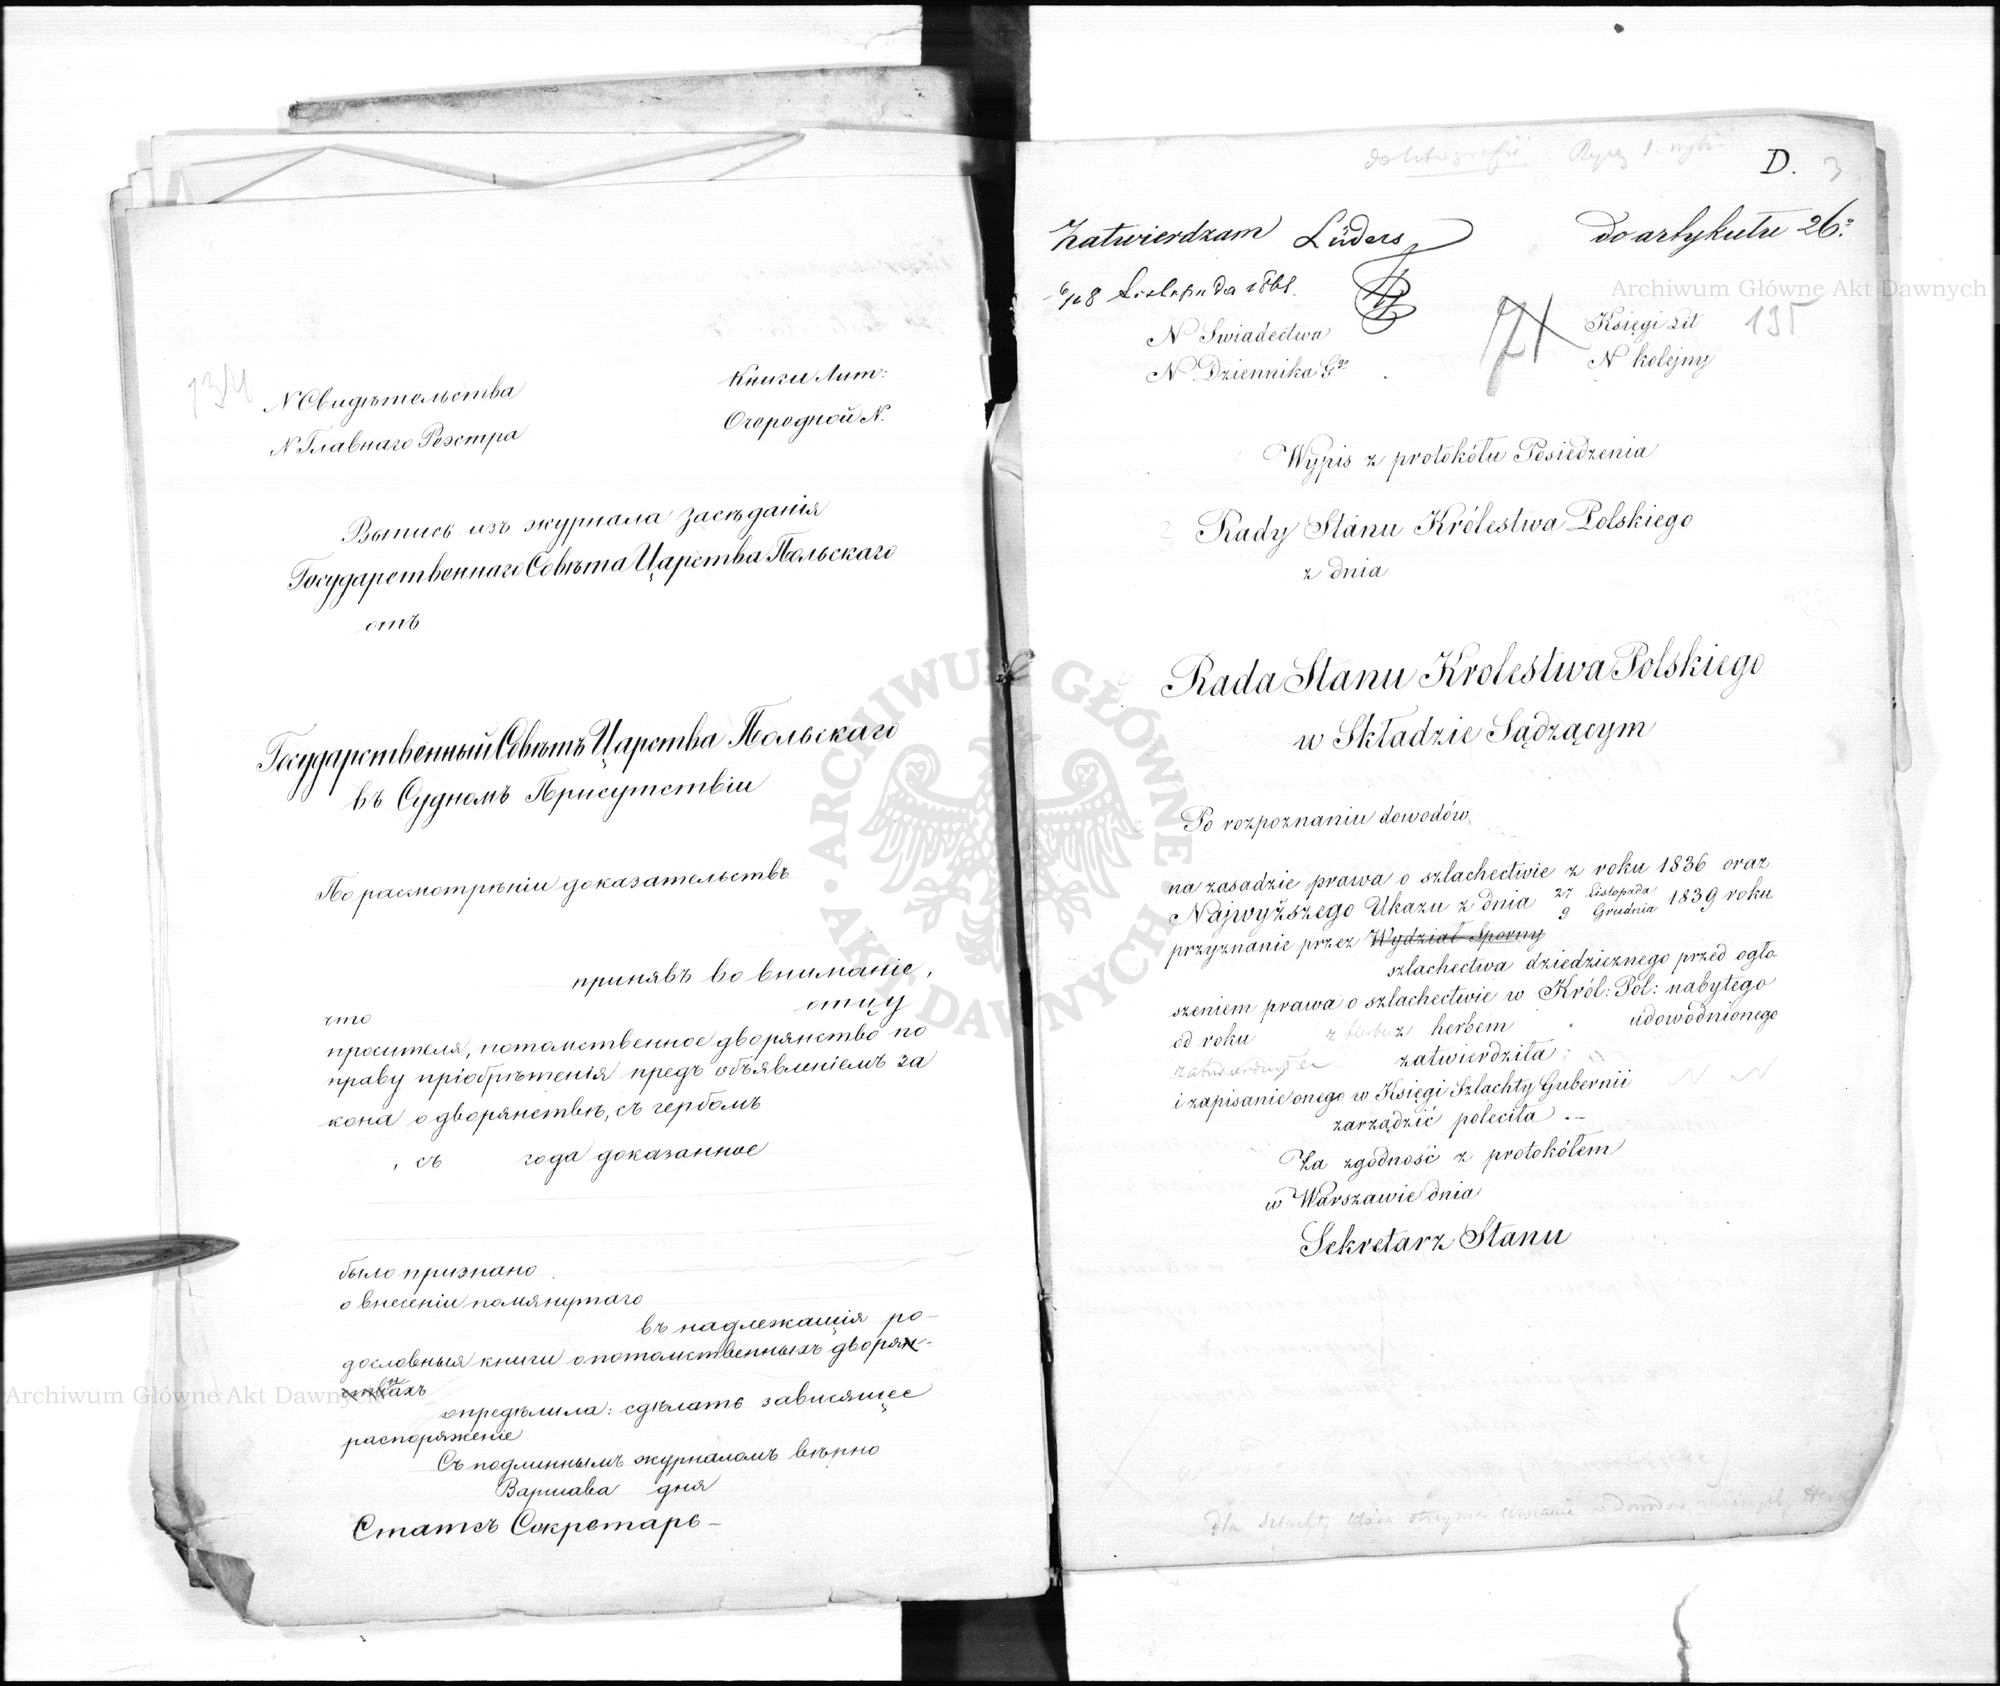 134
N Свидѣтельства
Книги Лит:
N Главнаго Реэстра
Очередной N.
Выпись изъ журнала засѣданія
Государственнаго Совѣта Царства Польскаго
отъ
Государственный Совѣтъ Царства Польскаго
въ Судномъ Присутствіи
По расмотрѣніи доказательствъ
принявъ во вниманіе,
что отцу
просителя, потомственное дворянство по
праву пріобрѣтенія предъ объявленіемъ за
кона о дворянствѣ, съ гербомъ
, съ года доказанное
было признано
о внесеніи помянутаго
въ надлежащія ро-
дословныя книги о потомственныхъ дворян-
ахъ
опредѣлила: сдѣлать зависящее
распоряженіе
Съ подлиннымъ журналомъ вѣрно
Варшава дня
Статсъ Секретарь
D. 3
Zatwierdzam Lüders
do artykułu 26.
6/18 Listopada 1861.
71
Księgi Lit 135
N Swiadectwa
N kolejny
N Dziennika Ggo
Wypis z protokółu Posiedzenia
Rady Stanu Królestwa Polskiego
z dnia
Rada Stanu Krolestwa Polskiego
w Składzie Sądzącym
Po rozpoznaniu dowodów
na zasadzie prawa o szlachectwie z roku 1836 oraz
Najwyższego Ukazu z dnia 27 Listopada 9 Grudnia 1839 roku
przyznanie przez Wydział Sporny
szlachectwa dziedzicznego przed ogło
szeniem prawa o szlachectwie w Król: Pol: nabytego
od roku z herbem udowodnionego
zatwierdziła:
i zapisanie onego w Księgi Szlachty Gubernii
zarządzić poleciła.—
Za zgodność z protokółem
w Warszawie dnia
Sekretarz Stanu
Dla szlachty która otrzyma uznanie
ARCHIWUM GŁÓWNE AKT DAWNYCH
Archiwum Główne Akt Dawnych
Archiwum Główne Akt Dawnych